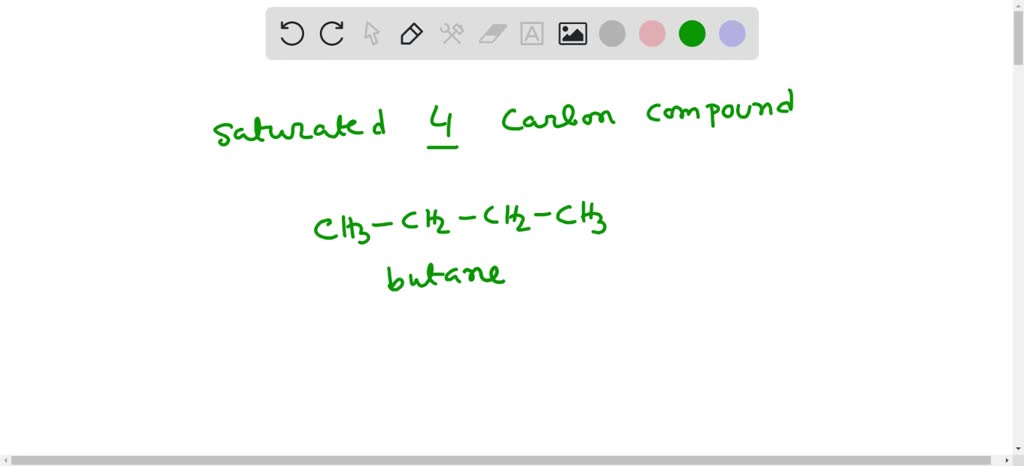 saturated 4 carbon compound
CH3-CH2-CH2-CH3
butane